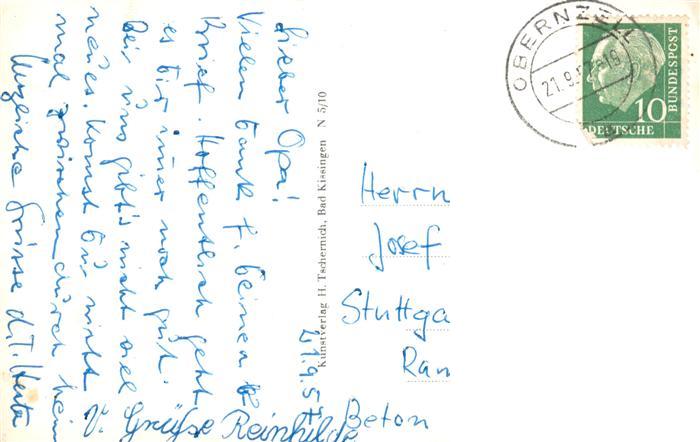 Lieber Opa!
Vielen Dank f. deinen
Brief. Hoffentlich geht
es dir imer noch gut.
Bei uns gibt's nicht viel
neues. Komst du nicht
mal zwischendurch heim
Herzliche Grüsse d. T. Herta
V. Grüße Reinhilde
21.9.57
Kunstverlag H. Tschernich, Bad Kissingen N 5/10
OBERNZELL
21.9.57
10
DEUTSCHE
BUNDESPOST
Herrn
Josef
Stuttga
Ran
Beton